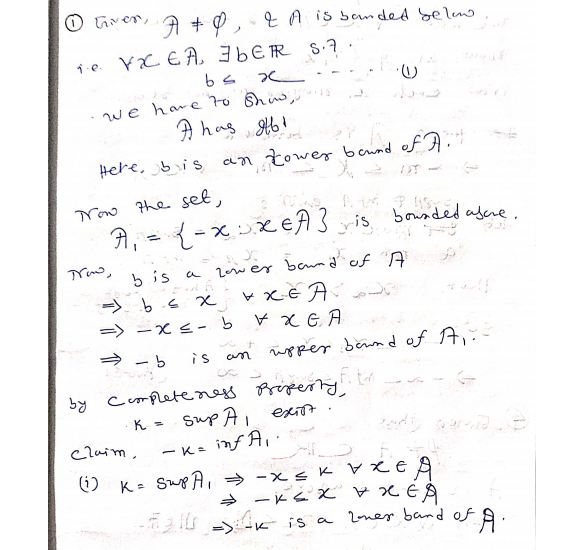 ① Given, A ≠ φ, & A is bounded below
i.e. ∀x ∈ A, ∃b ∈ ℝ s.t.
b ≤ x - - - - (1)
we have to show,
A has glb1
Here, b is an Lower bound of A.
Now the set,
A₁ = {-x : x ∈ A} is bounded above.
Now, b is a lower bound of A
⇒ b ≤ x ∀ x ∈ A
⇒ -x ≤ -b ∀ x ∈ A
⇒ -b is an upper bound of A₁.
by completeness property,
K = sup A₁ exist.
claim. -K = inf A₁.
(i) K = sup A₁ ⇒ -x ≤ K ∀ x ∈ A
⇒ -K ≤ x ∀ x ∈ A
⇒ -K is a lower band of A.